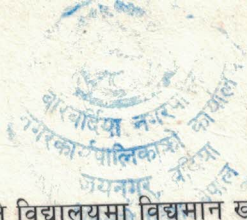 बारबर्दिया नगरपा
नगरकार्यपालिकाको कार्यालय
जयनगर, बर्दिया
नेपाल
विद्यालयमा विद्यमान